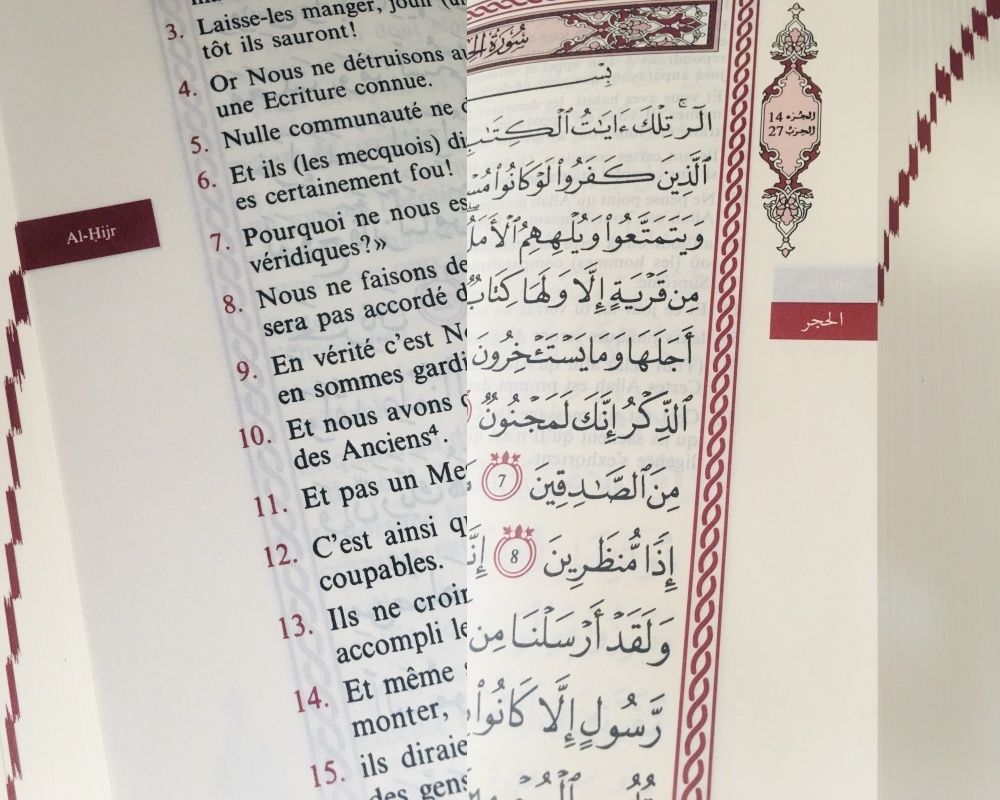 3. Laisse-les manger, jouir (
tôt ils sauront!
4. Or Nous ne détruisons
une Ecriture connue.
5. Nulle communauté ne
6. Et ils (les mecquois)
es certainement fou!
7. Pourquoi ne nous
véridiques?»
8. Nous ne faisons
sera pas accordé
9. En vérité c'est
en sommes
10. Et nous avons
des Anciens⁴.
11. Et pas un
12. C'est ainsi
coupables.
13. Ils ne
accompli
14. Et même
monter,
15. ils
des gens
Al-Ḥijr
سُورَةُ
الٓرۚ تِلْكَ ءَايَٰتُ
ٱلَّذِينَ كَفَرُوا۟ لَوْ كَانُوا۟
وَيَتَمَتَّعُوا۟ وَيُلْهِهِمُ
مِن قَرْيَةٍ إِلَّا وَلَهَا كِتَابٌ
أَجَلَهَا وَمَا يَسْتَـْٔخِرُونَ
ٱلذِّكْرُ إِنَّكَ لَمَجْنُونٌ
مِنَ ٱلصَّٰدِقِينَ 7
إِذًا مُّنظَرِينَ 8
وَلَقَدْ أَرْسَلْنَا مِن
رَّسُولٍ إِلَّا كَانُوا۟
الجزء 14
الحزب 27
الحجر